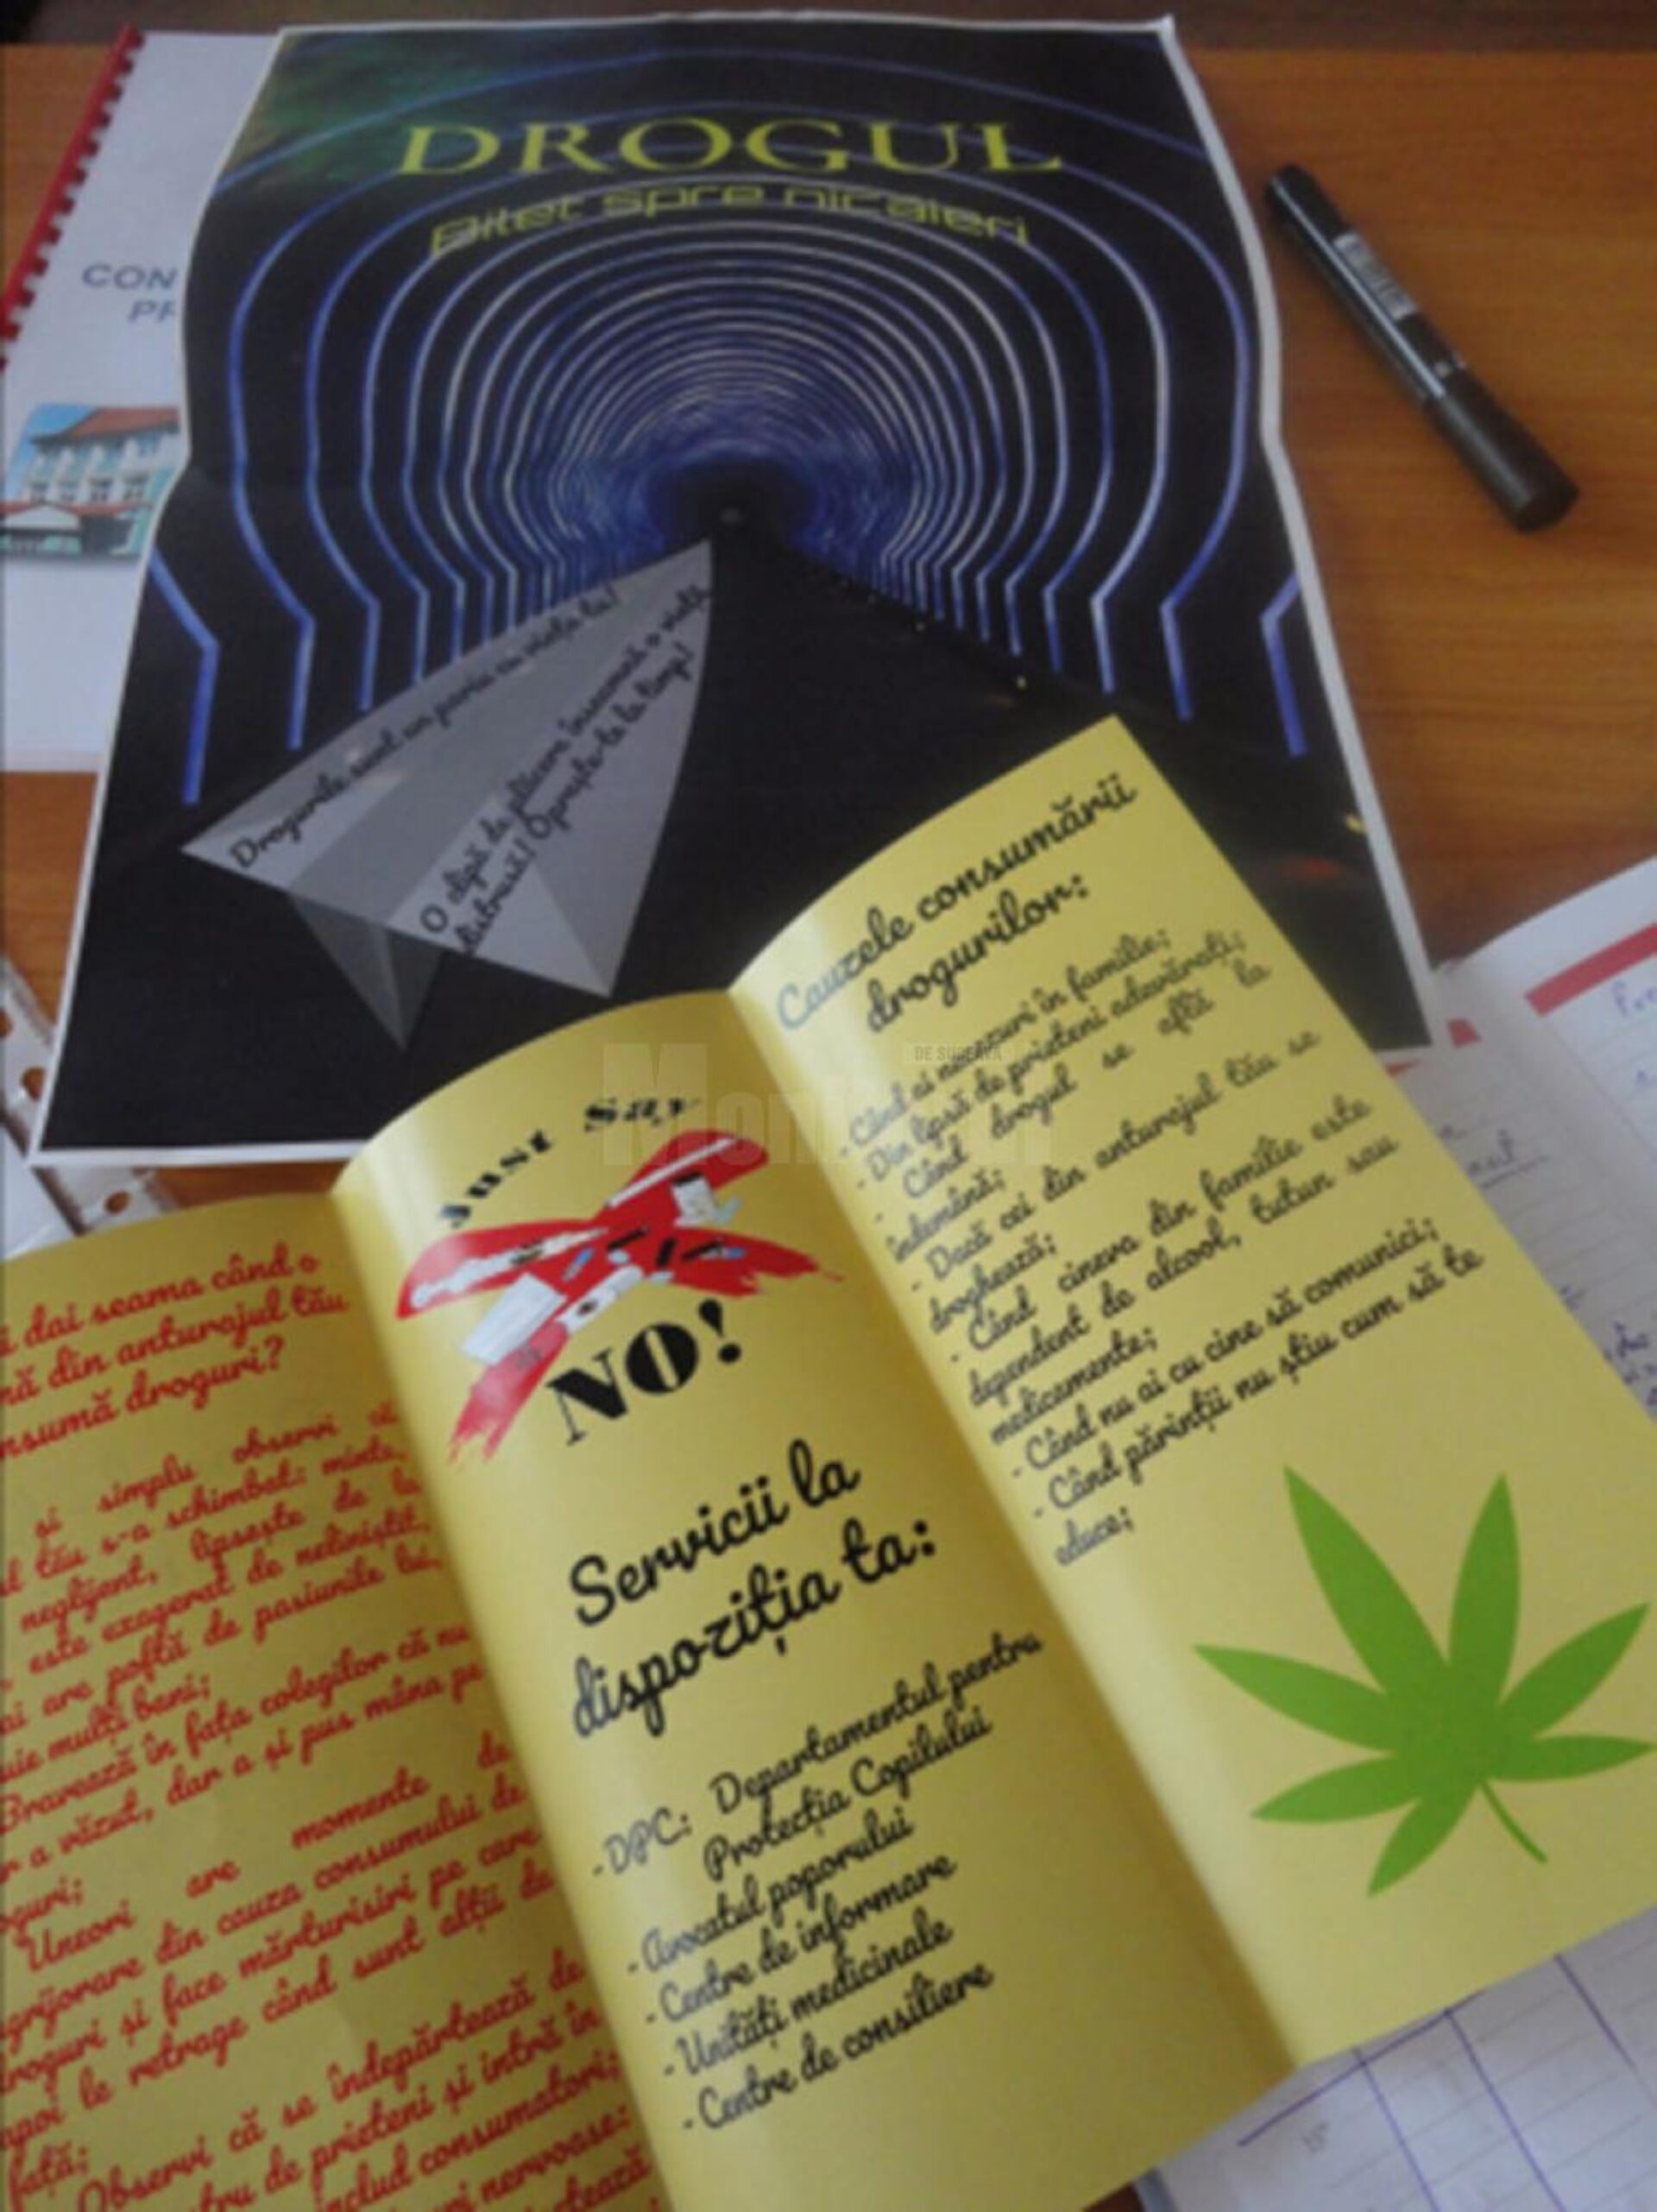 DROGUL
Bilet spre nicăieri
CON
PR
Drogurile sunt un pariu cu viața ta!
O clipă de plăcere înseamnă o viață
distrusă! Oprește-te la timp!
Cauzele consumării
drogurilor:
- Când ai necazuri în familie;
- Din lipsă de prieteni adevărați;
- Când drogul se află la
îndemână;
- Dacă cei din anturajul tău se
droghează;
- Când cineva din familie este
dependent de alcool, tutun sau
medicamente;
- Când nu ai cu cine să comunici;
- Când părinții nu știu cum să te
educe;
Just Say
NO!
Servicii la
dispoziția ta:
- DPC: Departamentul pentru
Protecția Copilului
- Avocatul poporului
- Centre de informare
- Unități medicinale
- Centre de consiliere
i dai seama când o
nă din anturajul tău
nsumă droguri?
și simplu observi că
l tău s-a schimbat: minte,
neglijent, lipsește de la
este exagerat de neliniștit,
ai are poftă de pasiunile lui,
uie mulți bani;
Bravează în fața colegilor că nu
r a văzut, dar a și pus mâna pe
oguri;
Uneori are momente de
grijorare din cauza consumului de
roguri și face mărturisiri pe care
apoi le retrage când sunt alții de
față;
Observi că se îndepărtează de
tru de prieteni și intră în
includ consumatori;
nervoase:
DE SUCEAVA
Monitorul